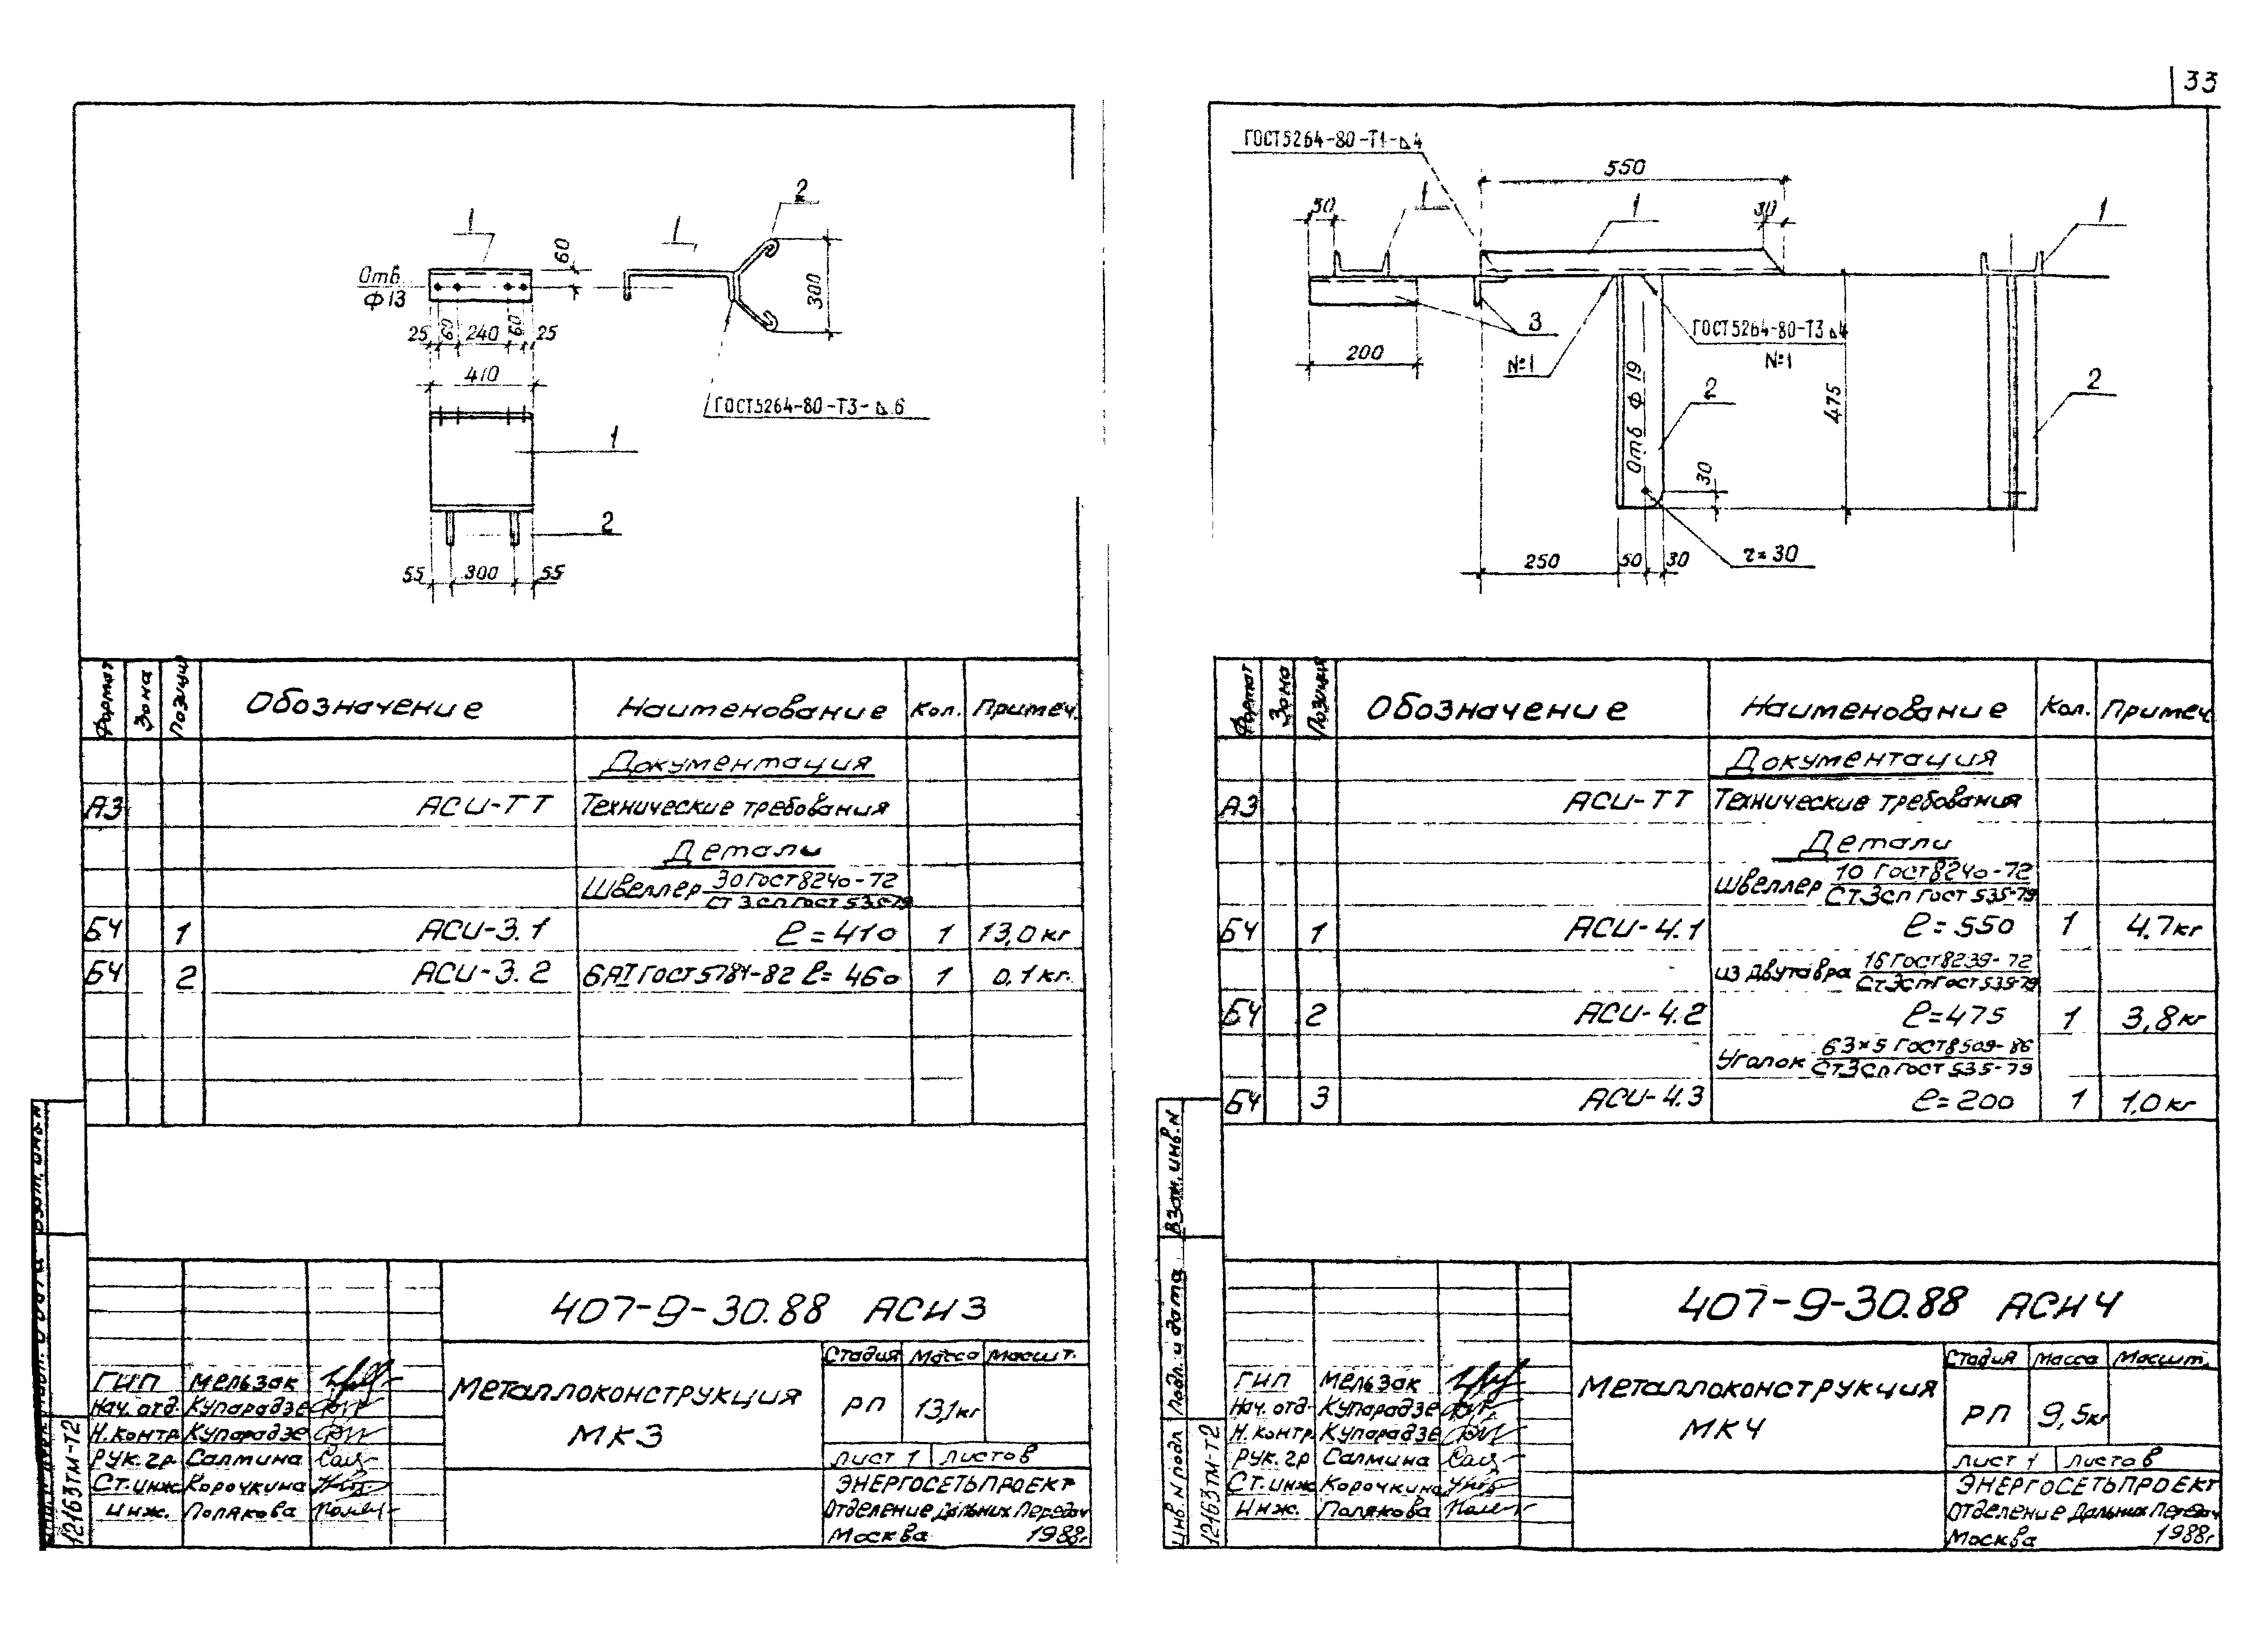 33
1
Отв
Ф13
60
25
60
240
60
25
410
1
2
55
300
55
1
2
300
ГОСТ5264-80-Т3-⊿6
Формат
Зона
Позиция
Обозначение
Наименование
Кол.
Примеч.
Документация
А3
АСИ-ТТ
Технические требования
Детали
Швеллер 30 ГОСТ 8240-72
Ст3сп ГОСТ 535-79
БЧ 1 АСИ-3.1 ℓ=410 1 13,0кг
БЧ 2 АСИ-3.2 6АI ГОСТ5781-82 ℓ=460 1 0,1кг.
Взам. инв. N
12163ТМ-Т2
407-9-30.88 АСИ3
Стадия Масса Масшт.
ГИП Мельзак
Нач. отд. Купарадзе
Н.контр Купарадзе
Рук. гр. Салмина
Ст. инж Корочкина
Инж. Полякова
Металлоконструкция
МК3
РП 13,1кг
Лист 1 Листов
ЭНЕРГОСЕТЬПРОЕКТ
Отделение Дальних Передач
Москва 1988г
ГОСТ5264-80-Т1-⊿4
550
50
1
1
30
1
200
3
№1
ГОСТ5264-80-Т3⊿4
№1
Отв Ф 19
2
475
2
30
250
50
30
r=30
Формат
Зона
Позиция
Обозначение
Наименование
Кол.
Примеч
Документация
А3
АСИ-ТТ
Технические требования
Детали
Швеллер 10 ГОСТ 8240-72
Ст3сп ГОСТ 535-79
БЧ 1 АСИ-4.1 ℓ=550 1 4,7кг
из двутавра 16 ГОСТ 8239-72
Ст3сп ГОСТ 535-79
БЧ 2 АСИ-4.2 ℓ=475 1 3,8кг
Уголок 63×5 ГОСТ 8509-86
Ст3сп ГОСТ 535-79
БЧ 3 АСИ-4.3 ℓ=200 1 1,0кг
Взам. инв. N
Подп. и дата
Инв. N подл
12163ТМ-Т2
407-9-30.88 АСИ4
Стадия Масса Масшт.
ГИП Мельзак
Нач. отд. Купарадзе
Н.контр. Купарадзе
Рук. гр Салмина
Ст. инж Корочкина
Инж. Полякова
Металлоконструкция
МК4
РП 9,5кг
Лист 1 Листов
ЭНЕРГОСЕТЬПРОЕКТ
Отделение Дальних Передач
Москва 1988г